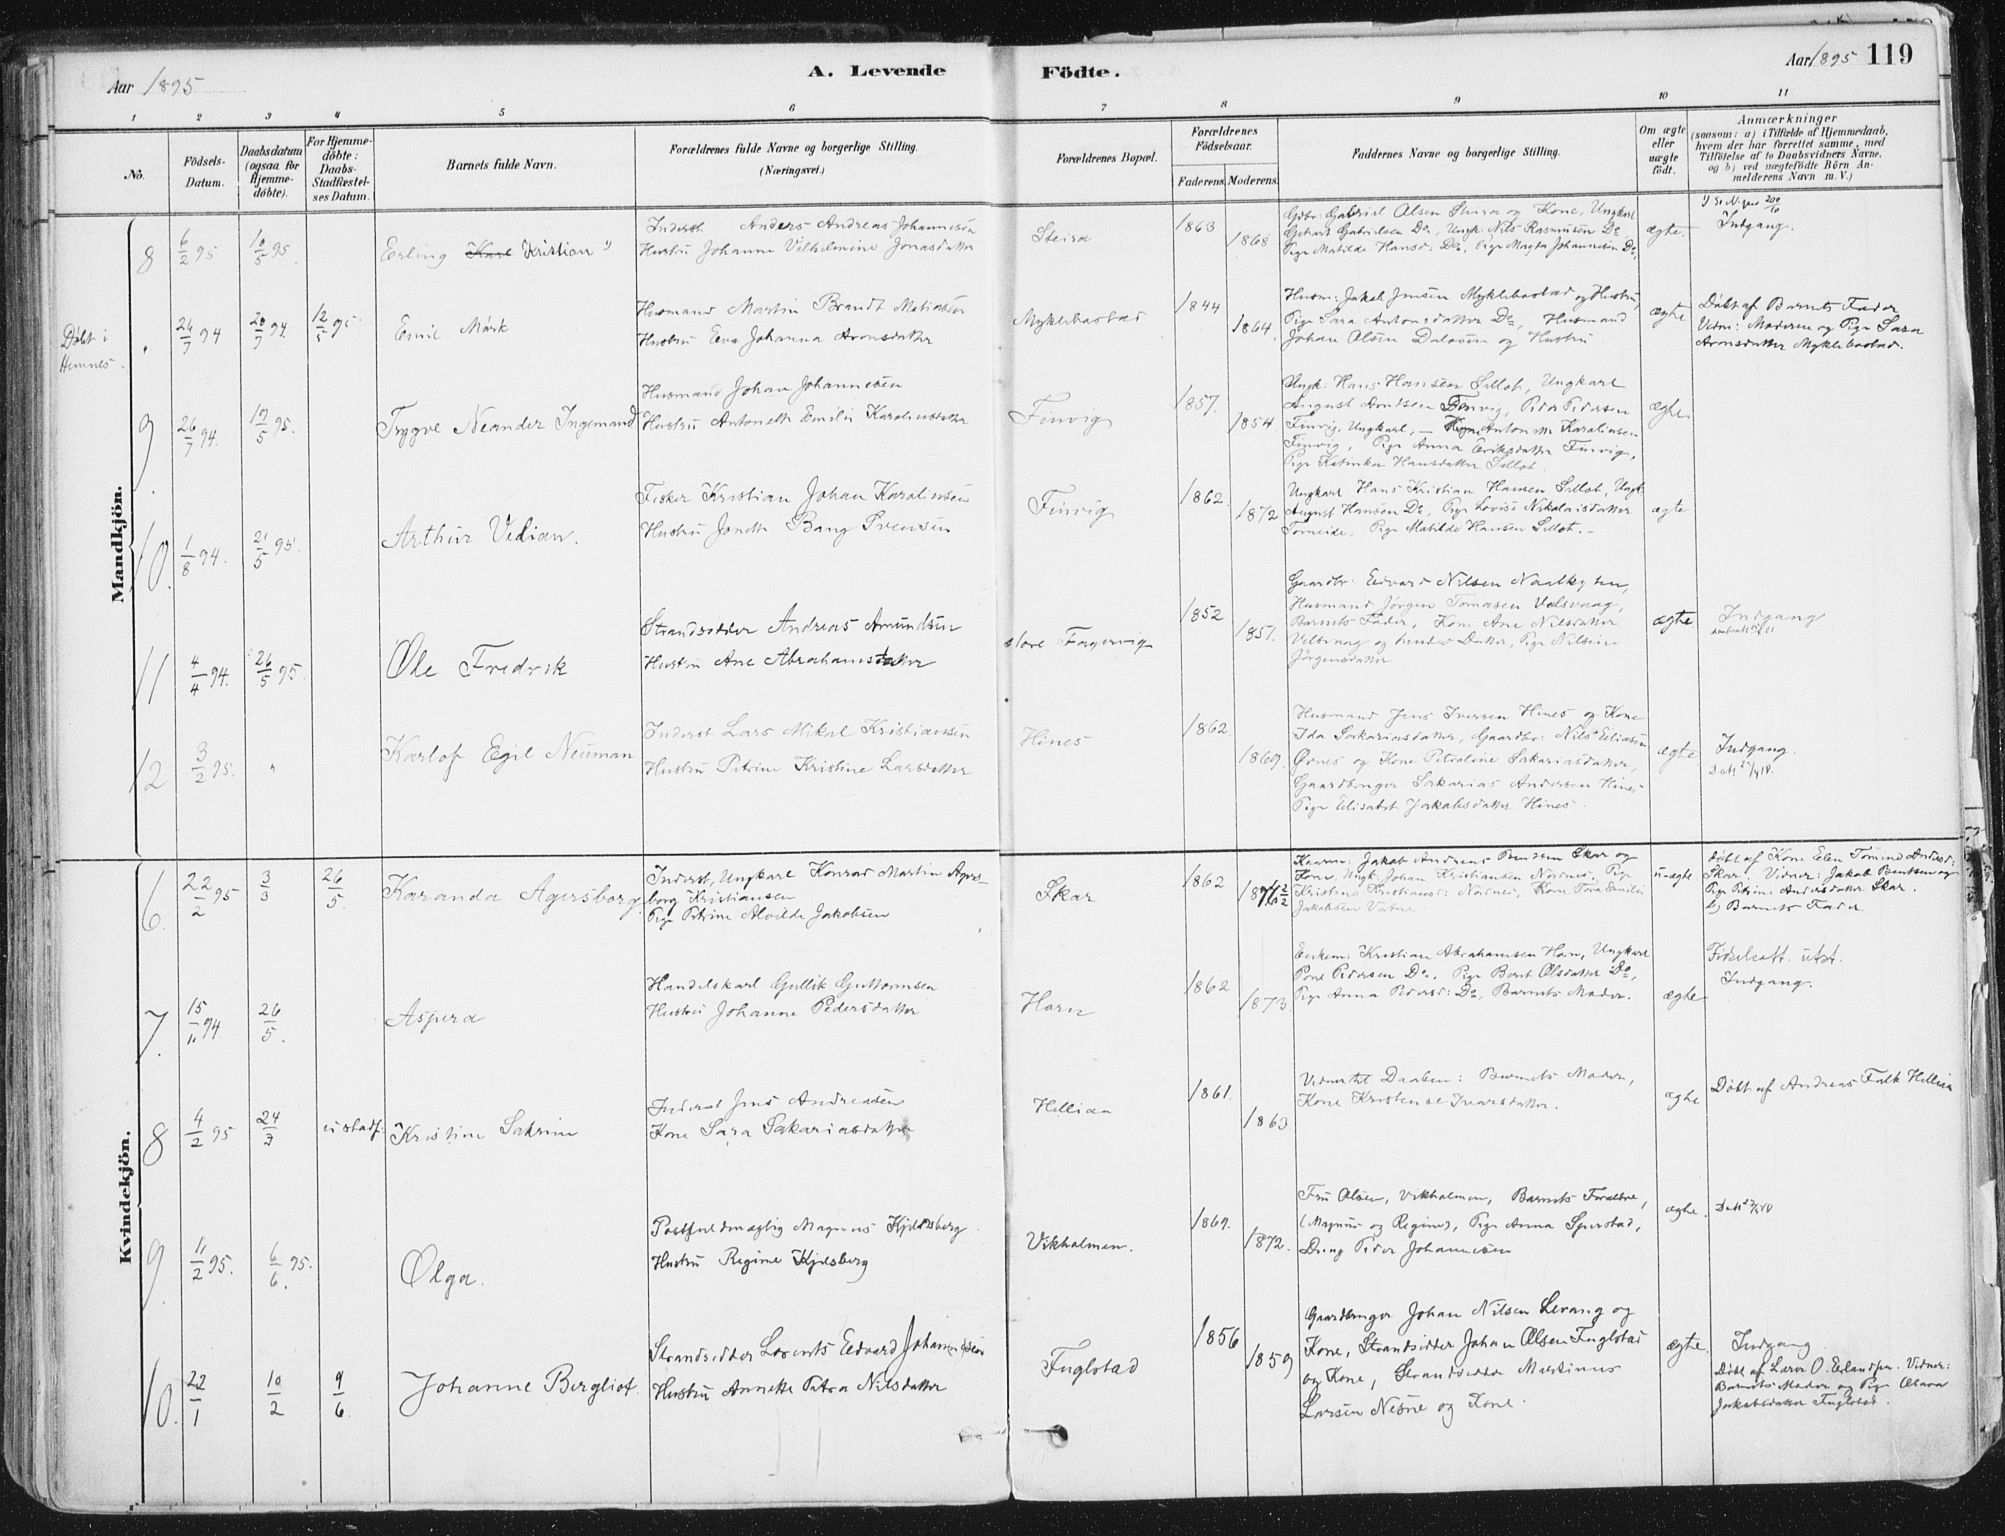 Aar 1895
A. Levende Födte.
Aar 1895 119
1 2 3 4 5 6 7 8 9 10 11
No.
Födsels-Datum.
Daabsdatum (ogsaa för Hjemme-döbte).
For Hjemme-döbte: Daabs-Stadfæstel-ses Datum.
Barnets fulde Navn.
Forældrenes fulde Navne og borgerlige Stilling. (Næringsvei.)
Forældrenes Bopæl.
Forældrenes Födselsaar.
Faderens. Moderens.
Faddernes Navne og borgerlige Stilling.
Om ægte eller uægte födt.
Anmærkninger
(saasom: a) i Tilfælde af Hjemmedaab,
hvem der har forrettet samme, med
Tilföielse af to Daabsvidners Navne,
og b) ved uægtefödte Börn An-
melderens Navn m. V.)
Mandkjön.
8 6/2 95 10/5 95. Erling Karl Kristian
Inderst Anders Andreas Johannesen
Hustru Johanne Vilhelmine Jonasdatter
Steira 1863 1868
Gdbr: Gabriel Olsen Steira og Kone, Ungkarl
Gerhart Gabrielsen Do, Ungk: Nils Rasmussen Do
Pige Matilde Hansd: Do, Pige Magta Johannesen Do.
ægte.
Indgang.
Døbt i Hemnes.
26/7 94 12/5 95 Emil Mark
Husmand Martin Brandt Matiassen
Hustru Eva Johanna Aronsdatter
Myklebostad 1844 1864
Husm: Jakob Jensen Myklebostad og Hustru,
Pige Sara Antonsdatter Do, Husmand
Johan Olsen Dalosen og Hustru
ægte
Døbt af Barnets Fader
Vidn: Moderen og Pige Sara
Aronsdatter Myklebostad.
9 26/7 94. 19/5 95. Trygve Neander Ingemand
Husmand Johan Johannesen
Hustru Antonette Emilie Karoliusdatter
Finvig 1857. 1854
Ungk: Hans Hansen Sellot, Ungkarl
August Arntsen Finvig, Peder Pedersen
Finvig, Ungkarl, Antonette Karoliusen
Finvig, Pige Anna Eriksdatter Finvig,
Pige Katinka Hansdatter Sellot.
ægte.
10. 1/8 94. 21/5 95. Arthur Vedian.
Fisker Kristian Johan Karoliusen
Hustru Jonette Bang Svensen
Finvig 1862 1872
Ungkarl Hans Kristian Hansen Sellot, Ungk
August Hansen Do, Pige Lovise Nikolaisdatter
Torneide, Pige Matilde Hansen Sellot.
ægte
11 4/4 94. 26/5 95. Ole Fredrik
Strandsidder Andreas Amundsen
Hustru Ane Abrahamsdatter
store Fagervig 1852 1851.
Gaardbr: Edvard Nilsen
Husmand Jørgen Tomasen Valsvaag,
Barnets Fader, Kone Ane Nilsdatter
Velsvaag og hendes Datter, Pige Nilsine
Jørgensdatter
ægte
Indgang
12 3/2 95. " Karlof Egil Neuman
Inderst Lars Mikal Kristiansen
Hustru Petrine Kristine Larsdatter
Hines 1862 1869.
Husmand Jens Iversen Hines og Kone
Ida Sakariasdatter, Gaardbr: Nils Eliasen
Ørnes og Kone Petroline Sakariasdatter,
Gaardbruger Sakarias Andersen Hines
Pige Elisabet Jakobsdatter Hines.
ægte
Indgang.
Kvindekjön.
6. 22/2 95 3/3 26/5. Karanda Agersborg
Inderst, Ungkarl Konrad Martin Agers-
borg Kristiansen
Pige Petrine Alvilde Jakobsen
Skar 1862
Kaarm: Jakob Andreas Bentsen Skar og
Kone, Ungk: Johan Kristiansen Nordnes, Pige
Kristine Kristiansd: Nordnes, Kone Tora Emilie
Jakobsen
uægte
Døbt af Kone Elen Tomine Andersd:
Skar. Vidner: Jakob Bentsen og
Pige Petrine Andersdatter Skar.
b) Barnets Fader
7. 15/11 94 26/5. Aspera
Handelskarl Gullik Guttormsen
Hustru Johanne Pedersdatter
Horn 1862 1873.
Enkem: Kristian Abrahamsen Horn, Ungkarl
Pone Pedersen Do, Pige Berit Olsdatter Do,
Pige Anna Pedersd: Do, Barnets Moder.
ægte
Indgang.
8 4/2 95 24/3 Kristine Sakrine
Inderst Jens Andreasen
Kone Sara Sakariasdatter
Hellian 1861. 1863
Vidner til Daaben: Barnets Moder,
Kone Kristense Ivarsdatter.
ægte
Døbt af Andreas Falk Hellian
9. 11/2 95. 6/6 95. Olga.
Postfuldmægtig Magnus Kjeldsberg
Hustru Regine Kjelsberg
Vikholmen. 1867. 1872.
Fru Olsen, Vikholmen, Barnets Forældre,
(Magnus og Regine), Pige Anna Sjerstad,
Dreng Peder Johannesen
ægte.
10. 22/1 10/2 9/6 Johanne Bergliot.
Strandsidder Lorents Edvard Johannesen
Hustru Annette Petra Nilsdatter
Fuglstad 1856 1859
Gaardbruger Johan Nilsen Levang og
Kone, Strandsidder Johan Olsen Fuglstad
og Kone, Strandsidder Martinus
Larsen Nesne og Kone.
ægte.
Indgang
Døbt af Lærer O. Erlandsen. Vidner:
Barnets Moder og Pige Olava
Jakobsdatter Fuglstad.